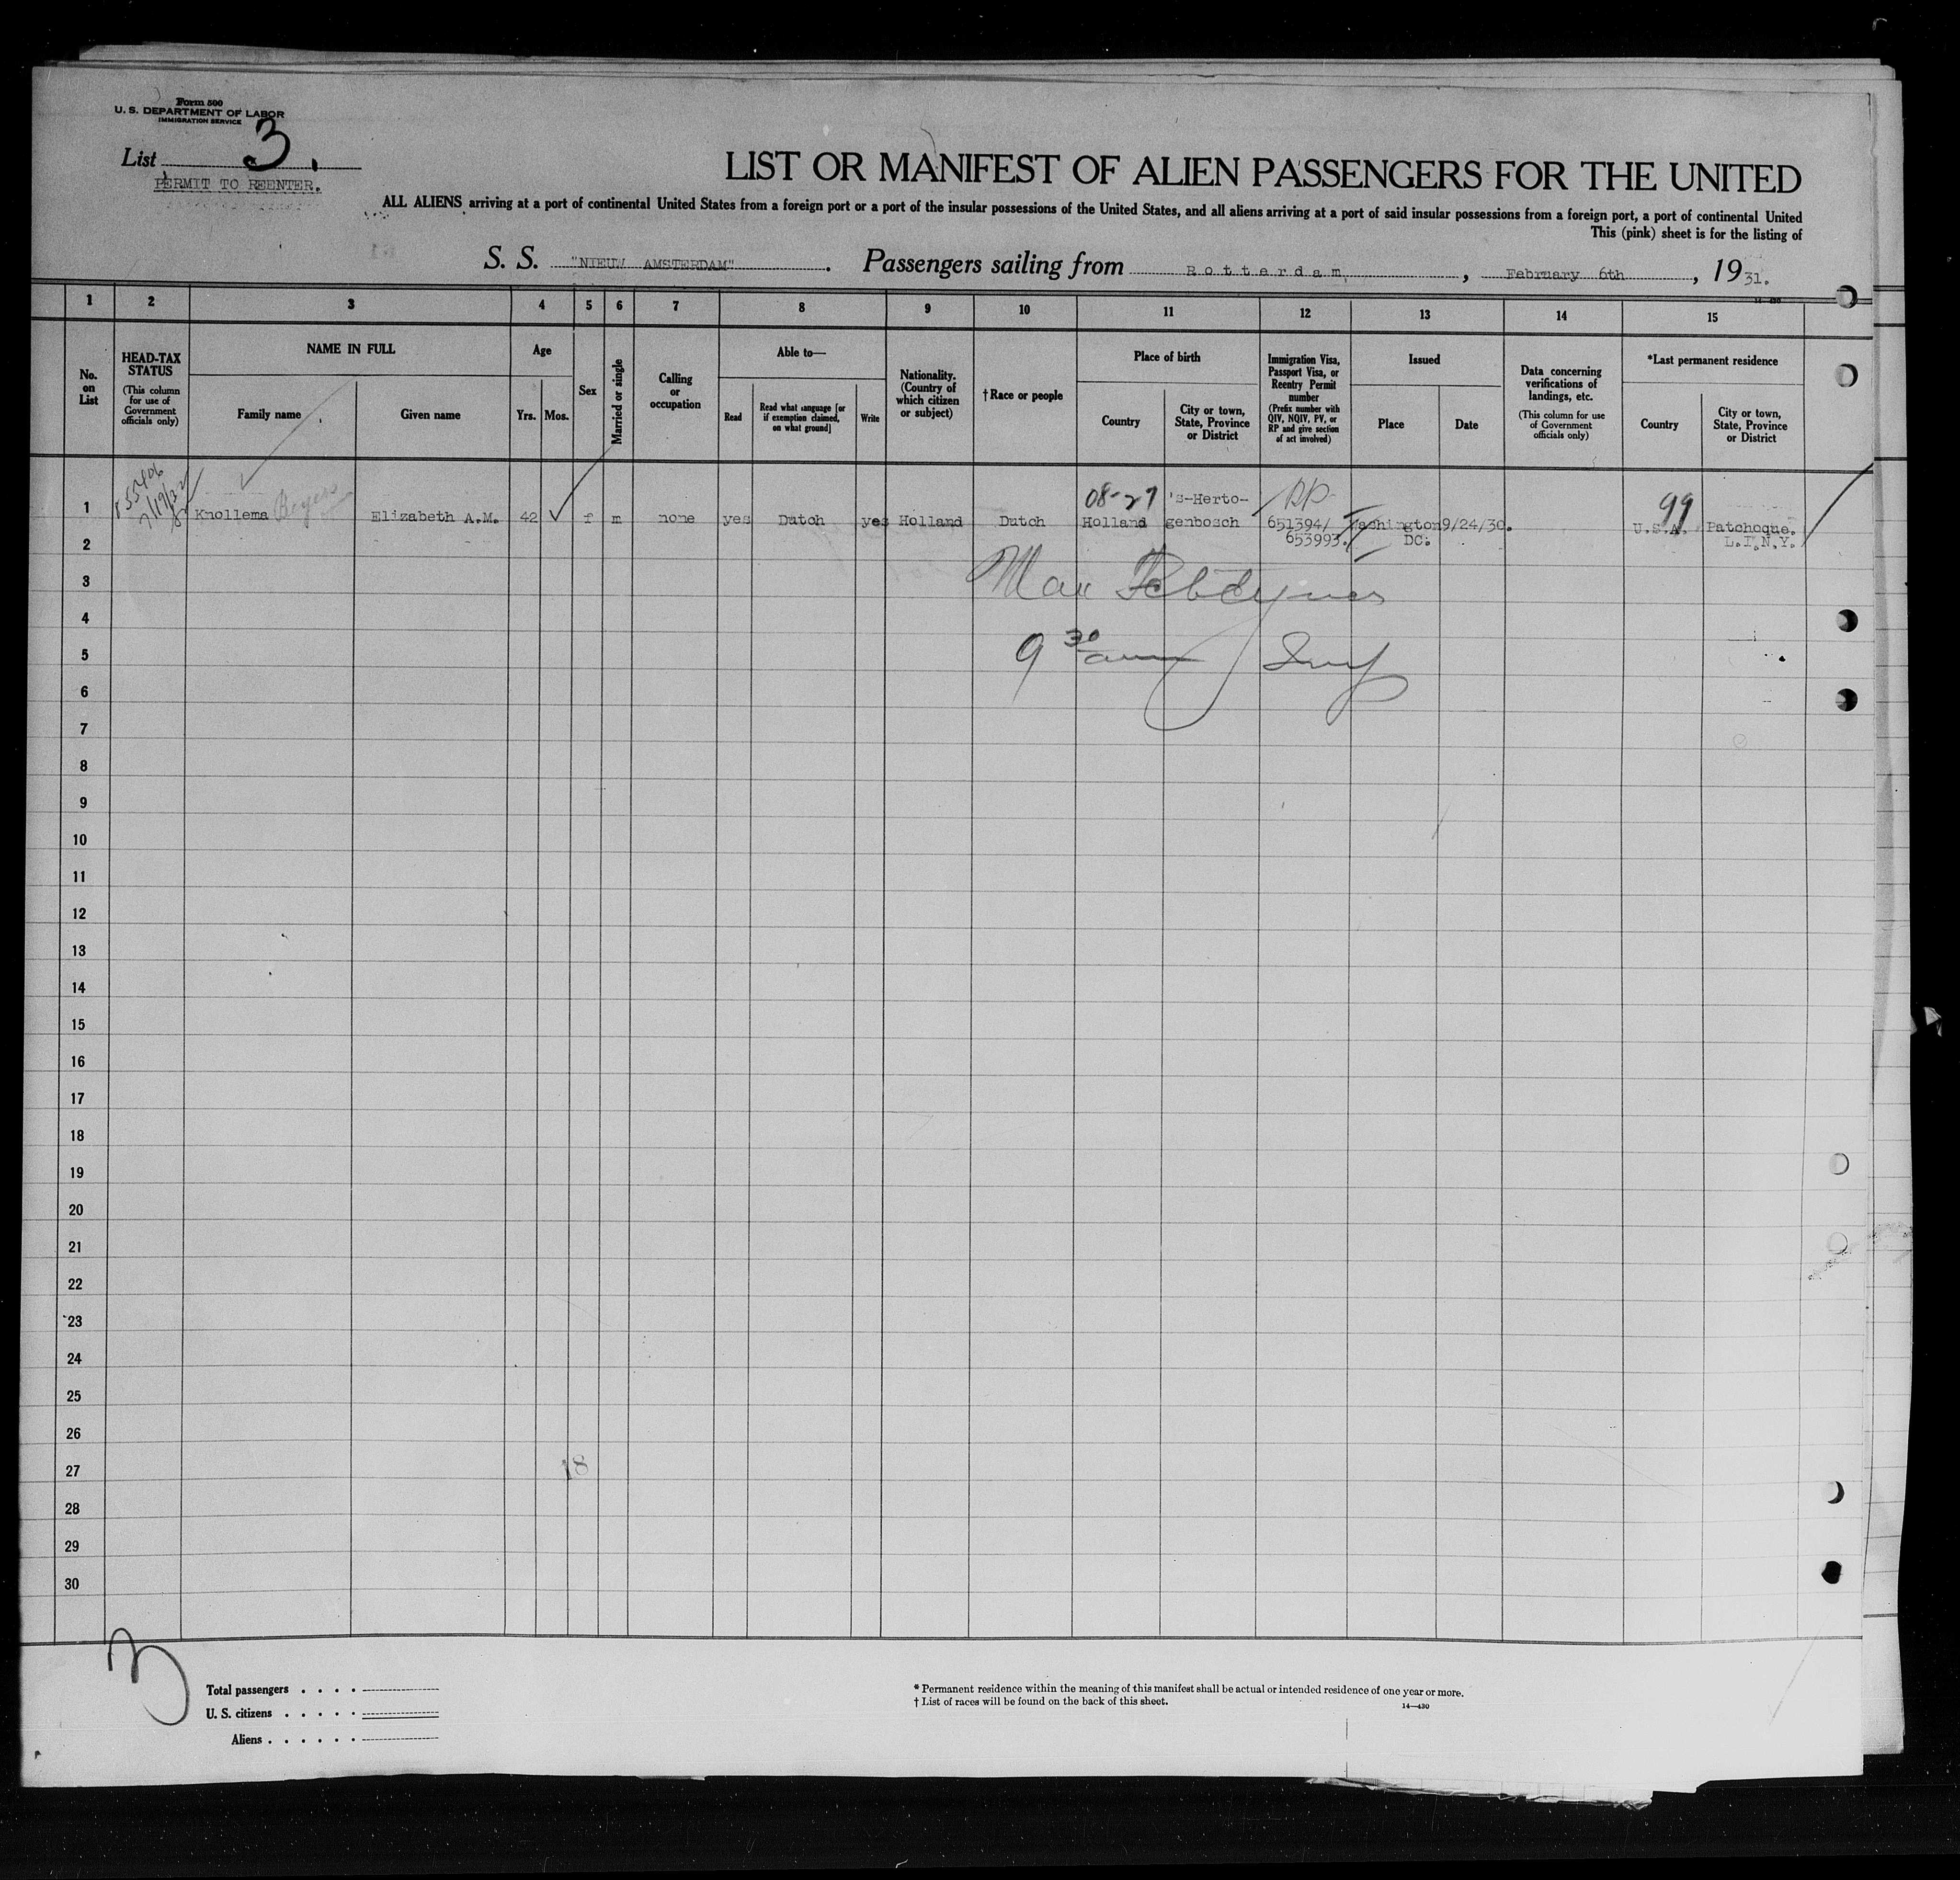 Form 500
U. S. DEPARTMENT OF LABOR
IMMIGRATION SERVICE
List 3.
PERMIT TO REENTER.
LIST OR MANIFEST OF ALIEN PASSENGERS FOR THE UNITED
ALL ALIENS arriving at a port of continental United States from a foreign port or a port of the insular possessions of the United States, and all aliens arriving at a port of said insular possessions from a foreign port, a port of continental United
This (pink) sheet is for the listing of
S. S. "NIEUW AMSTERDAM". Passengers sailing from Rotterdam, February 6th, 1931.
1 2 3 4 5 6 7 8 9 10 11 12 13 14 15
No. on List
HEAD-TAX STATUS
(This column for use of Government officials only)
NAME IN FULL
Family name
Given name
Age
Yrs.
Mos.
Sex
Married or single
Calling or occupation
Able to—
Read
Read what language [or if exemption claimed, on what ground]
Write
Nationality. (Country of which citizen or subject)
†Race or people
Place of birth
Country
City or town, State, Province or District
Immigration Visa, Passport Visa, or Reentry Permit number
(Prefix number with QIV, NQIV, PV, or RP and give section of act involved)
Issued
Place
Date
Data concerning verifications of landings, etc.
(This column for use of Government officials only)
*Last permanent residence
Country
City or town, State, Province or District
08-27 's-Herto- RP 99
1 Knollema Elizabeth A.M. 42 f m none yes Dutch yes Holland Dutch Holland genbosch 651394/ Washington 9/24/30. U.S.A. Patchoque.
653993. DC. L.I.N.Y.
2
3
4
9 30 am
5
6
7
8
9
10
11
12
13
14
15
16
17
18
19
20
21
22
23
24
25
26
18
27
28
29
30
3
Total passengers . . . .
U. S. citizens . . . . .
Aliens . . . . . .
* Permanent residence within the meaning of this manifest shall be actual or intended residence of one year or more.
† List of races will be found on the back of this sheet.
14—430